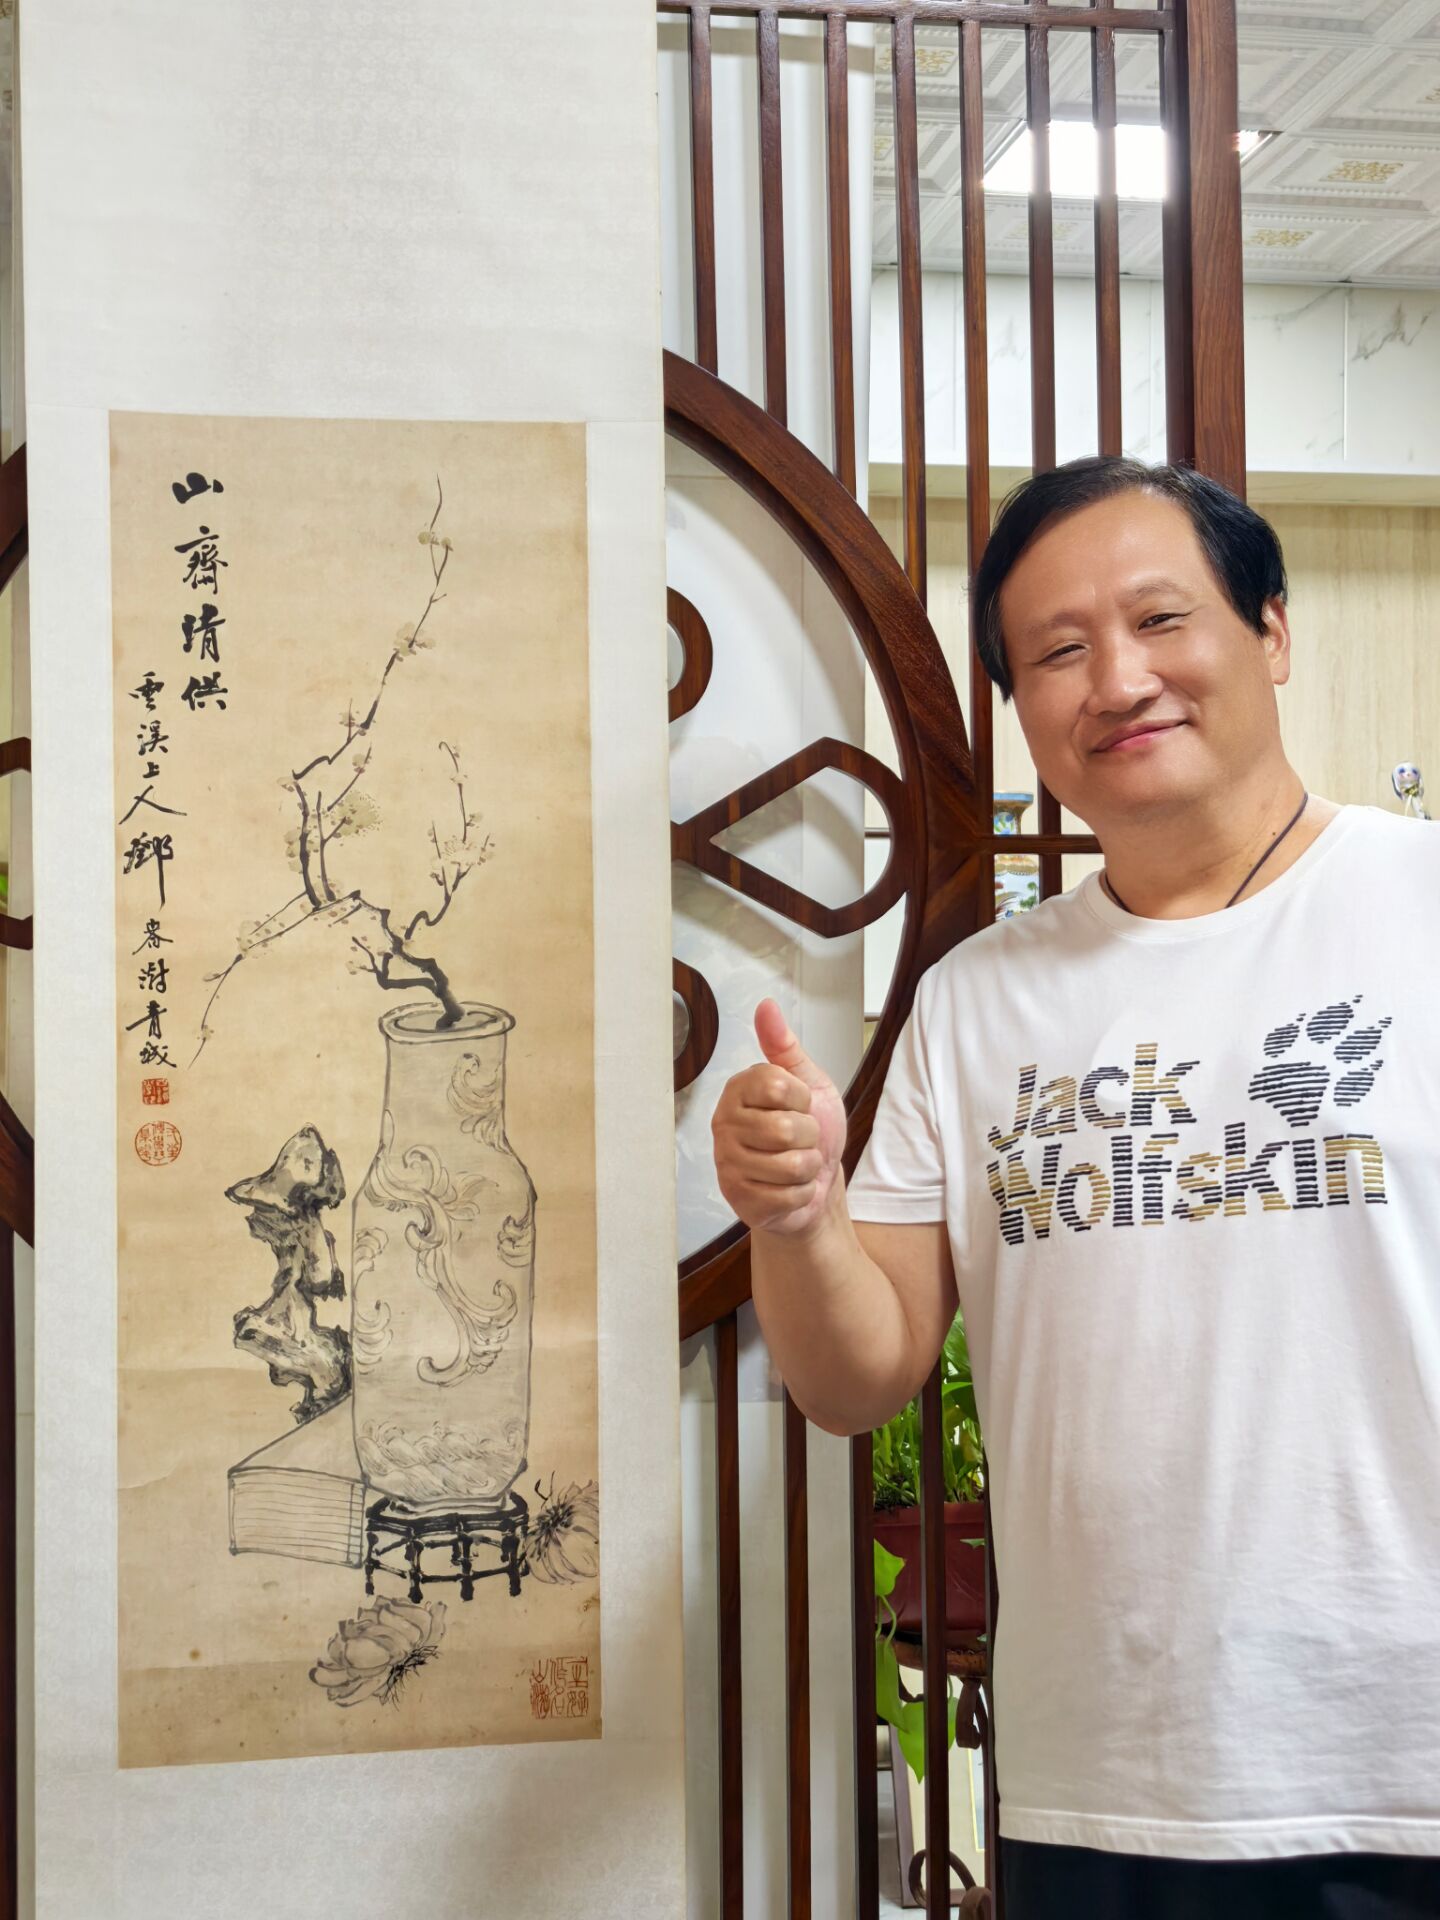 山齋清供
雲溪上人鄧春澍青城
Jack
Wolfskin